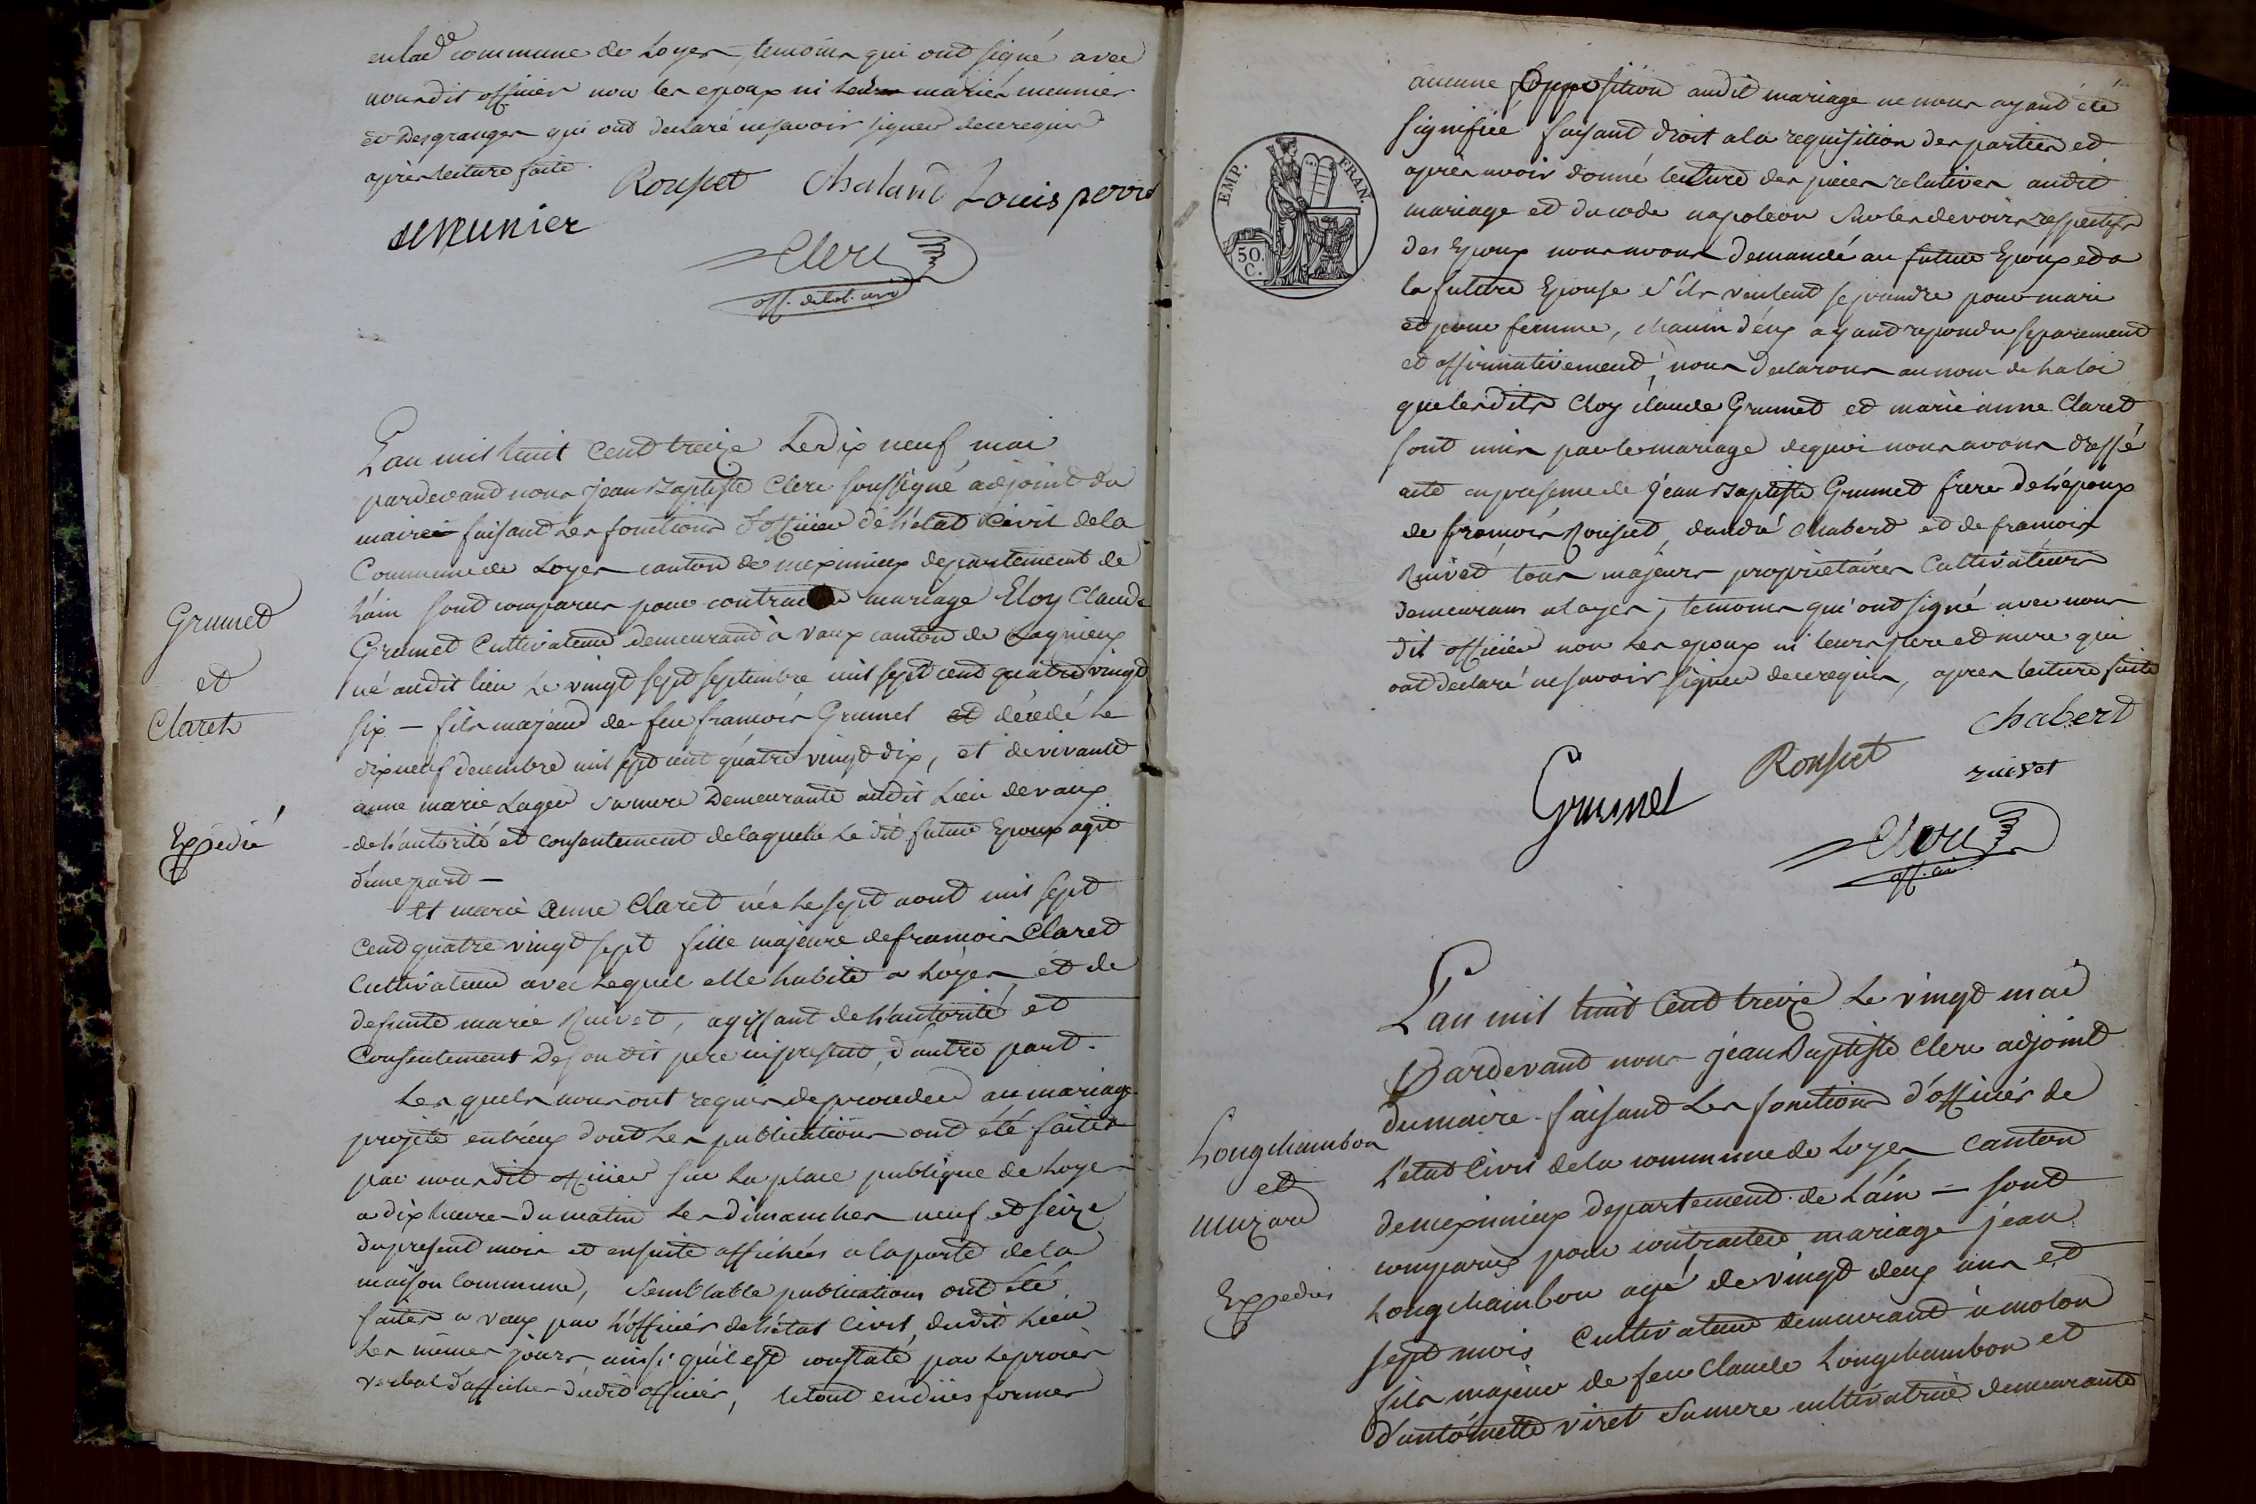 en lad commune de Loyes, temoins qui ont signé avec
nousdit officier non les epoux ni leurs mariés meunier
et Desgranges qui ont declaré ne savoir signer de ce requis
après lecture faite.
Rousset Chaland Louis perro
meunier
Clerc
off. de l'et. civ.
Grumet
et
Claret
Expédié
L'an mil huit cent treize Le dix neuf mai
pardevant nous jean Baptiste Clerc soussigné adjoint du
maire faisant les fonctions d'officier de l'état civil de la
Commune de Loyes canton de meximieux departement de
L'ain sont comparus pour contracter mariage Eloy Claude
Grumet Cultivateur demeurant à vaux canton de Lagnieux
né audit lieu le vingt sept septembre mil sept cent quatre vingt
six – fils majeur de feu francois Grumet et décédé le
dix neuf decembre mil sept cent quatre vingt dix, et de vivante
anne marie Lager sa mere Demeurante audit Lieu de vaux
de l'autorité et consentement de laquelle le dit futur Epoux agit
d'une part –
Et marie anne Claret née le sept aout mil sept
cent quatre vingt sept fille majeure de francois Claret
Cultivateur avec lequel elle habite a Loyes, et de
defunte marie Ruivet, agissant de l'autorité et
consentement de son dit pere ici present, d'autre part.
Les quels nous ont requis de proceder au mariage
projeté entr'eux dont les publications ont été faites
par nousdit officier sur la place publique de Loyes
a dix heures du matin les dimanches neuf et seize
du present mois et ensuite affichées a la porte de la
maison Commune, semblable publications ont été
faites a vaux par l'officier de l'état civil dudit Lieu
les mêmes jours ainsi qu'il est constaté par le procès
verbal d'affiches dudit officier, le tout en dues formes
EMP. FRAN.
50. C.
aucune opposition audit mariage ne nous ayant été
signifiée faisant droit a la requisition des parties et
après avoir donné lecture des pieces relatives audit
mariage et du code napoleon sur les devoirs respectifs
des Epoux nous avons demandé au futur Epoux et a
la future Epouse s'ils veulent se prendre pour mari
et pour femme, chacun d'eux ayant repondu separement
et affirmativement, nous declarons au nom de la loi
que lesdits Eloy claude Grumet et marie anne Claret
sont unis par le mariage de quoi nous avons dressé
acte en presence de jean Baptiste Grumet frere de l'époux
de francois Rousset, d'andré Chabert et de francois
Ruivet tous majeurs propriétaires Cultivateurs
demeurans a Loyes, temoins qui ont signé avec nous
dit officier non les epoux ni leurs pere et mere qui
ont declaré ne savoir signer de ce requis, apres lecture faite
Chabert
Grumet Rousset ruivet
Clerc
off. civ.
Longchambon
et
muzard
Expédiés
L'an mil huit cent treize le vingt mai
Pardevant nous jean Baptiste Clerc adjoint
du maire faisant les fonctions d'officier de
l'etat civil de la commune de Loyes canton
de meximieux departement de L'ain – sont
comparus pour contracter mariage jean
Longchambon agé de vingt deux ans et
sept mois Cultivateur demeurant à molon
fils majeur de feu Claude Longchambon et
d'antoinette viret sa mere cultivatrice demeurante